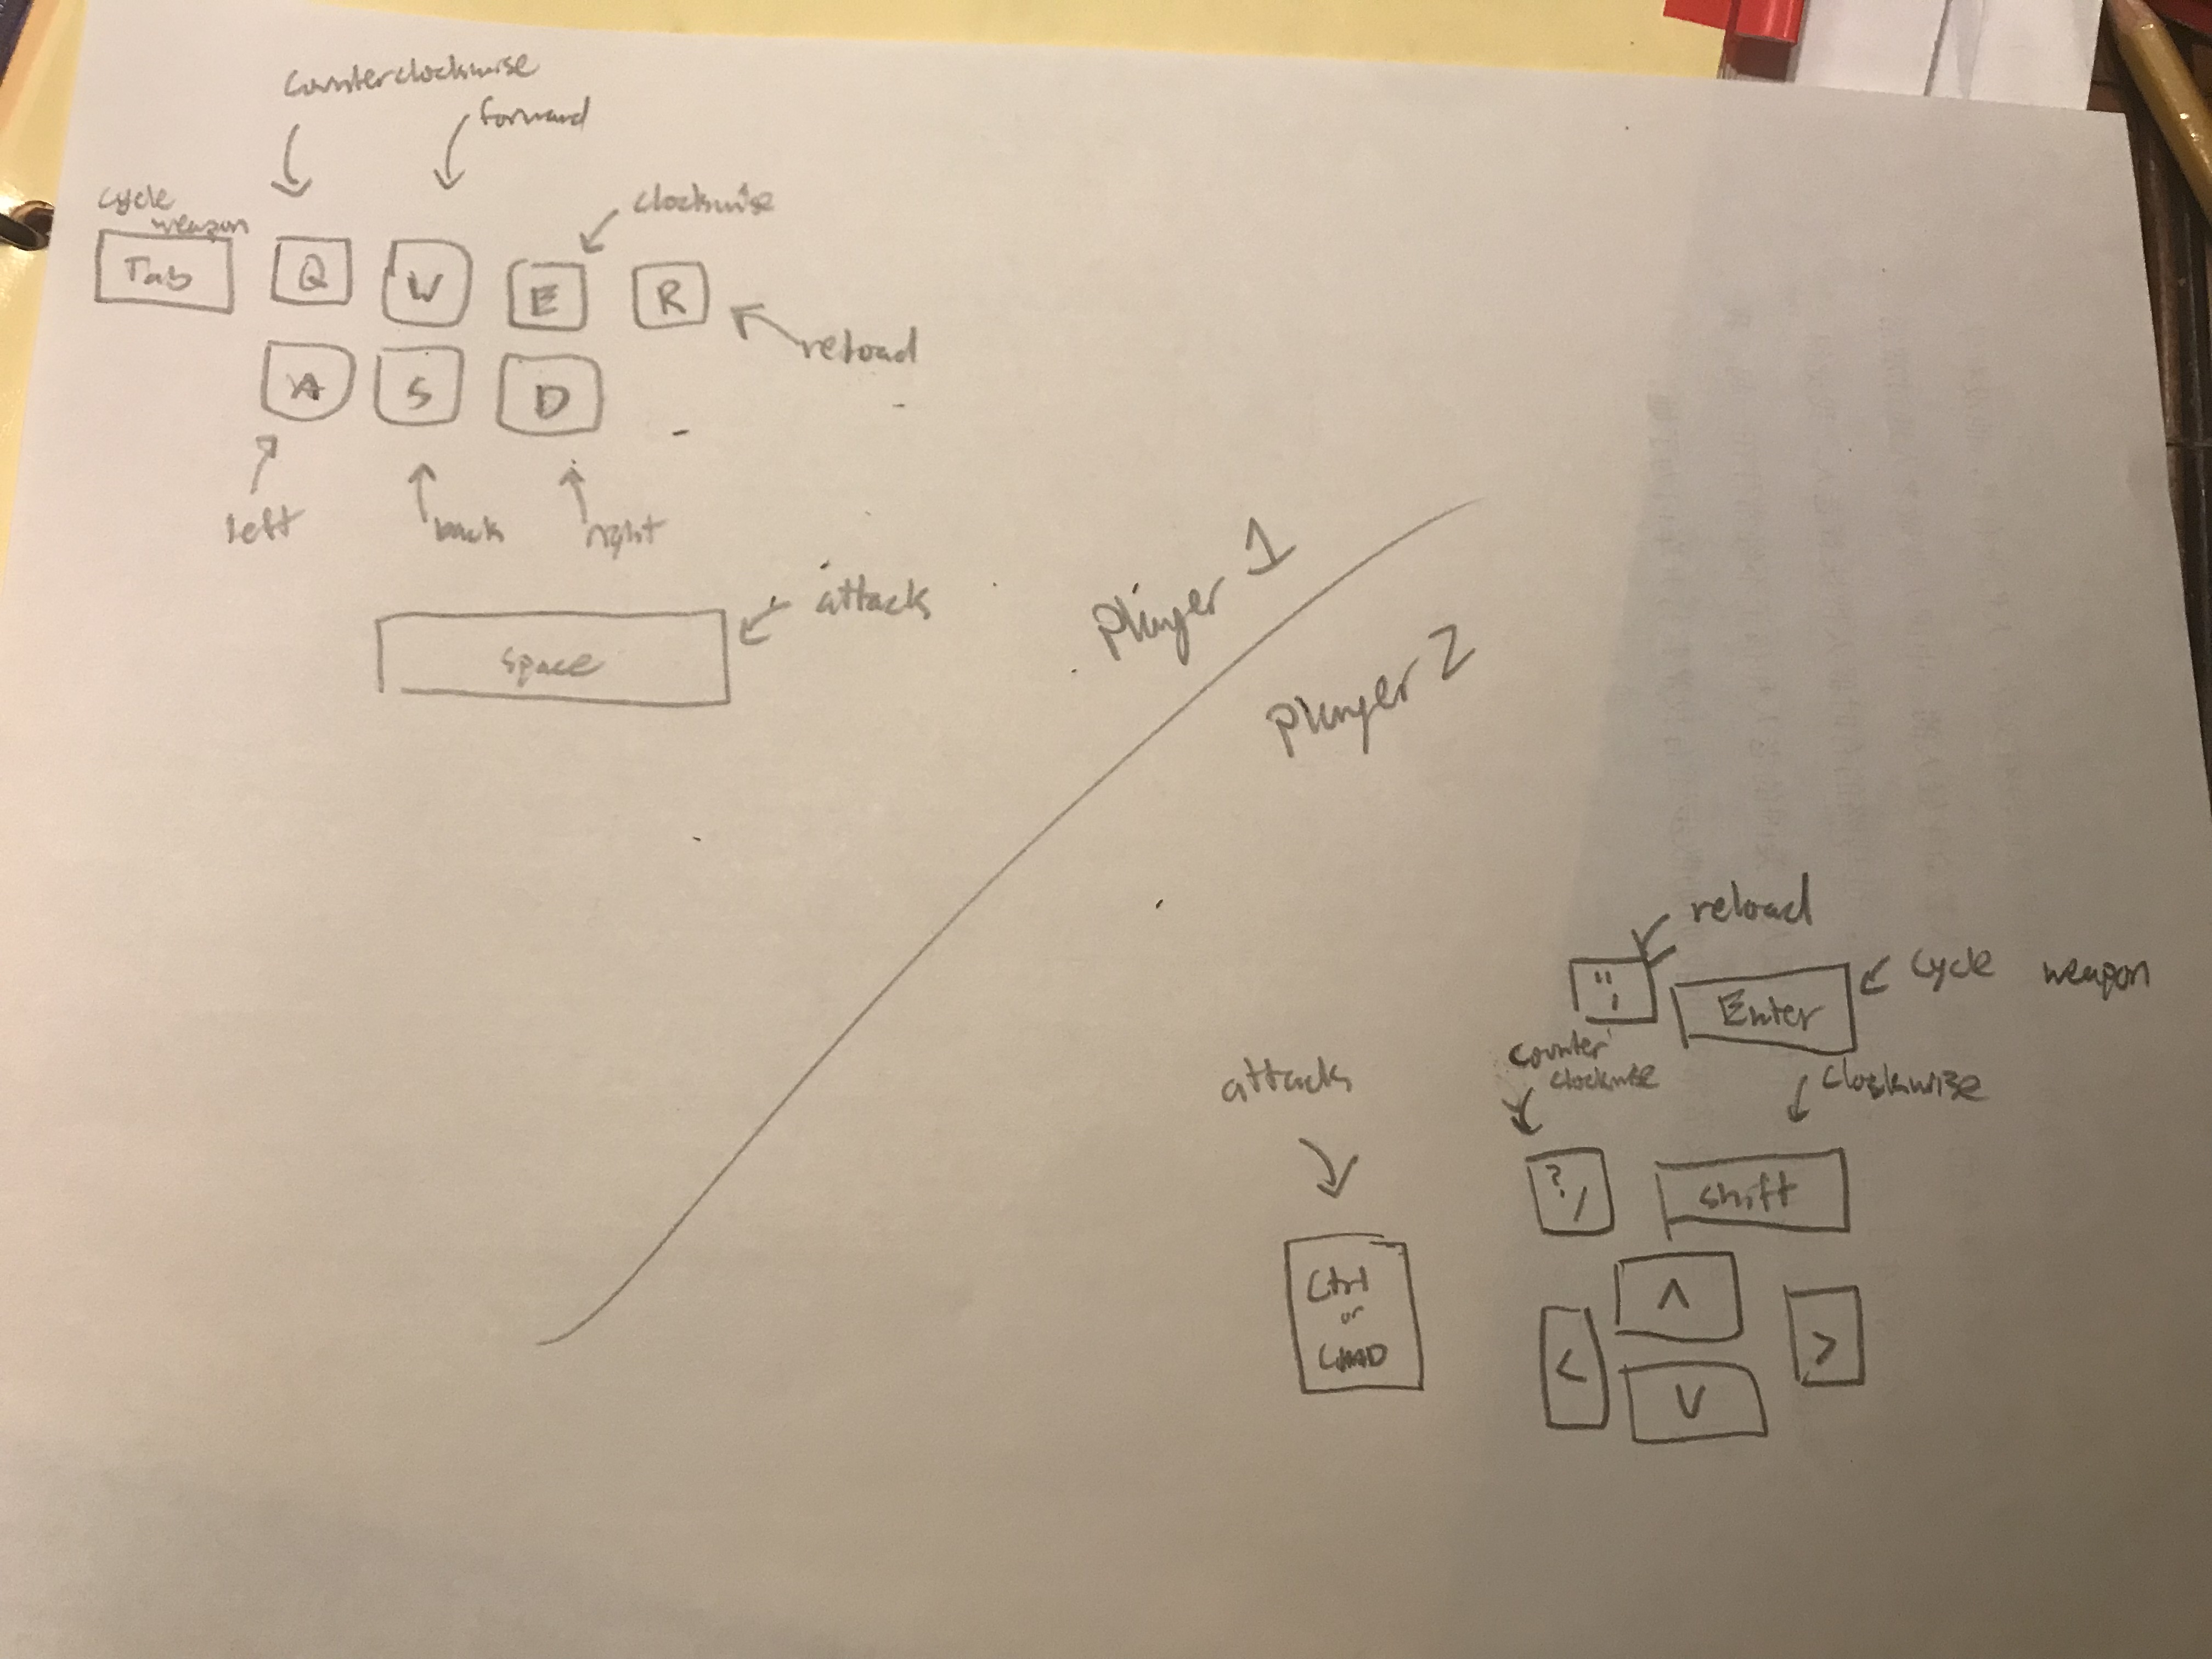 Counterclockwise
forward
cycle
weapon
clockwise
Tab Q W E R
reload
A S D
left back right
attack
Space
Player 1
Player 2
reload
" '
Enter
cycle weapon
counter
clockwise
clockwise
attack
? /
shift
Ctrl
or
CMD
< ^ >
v